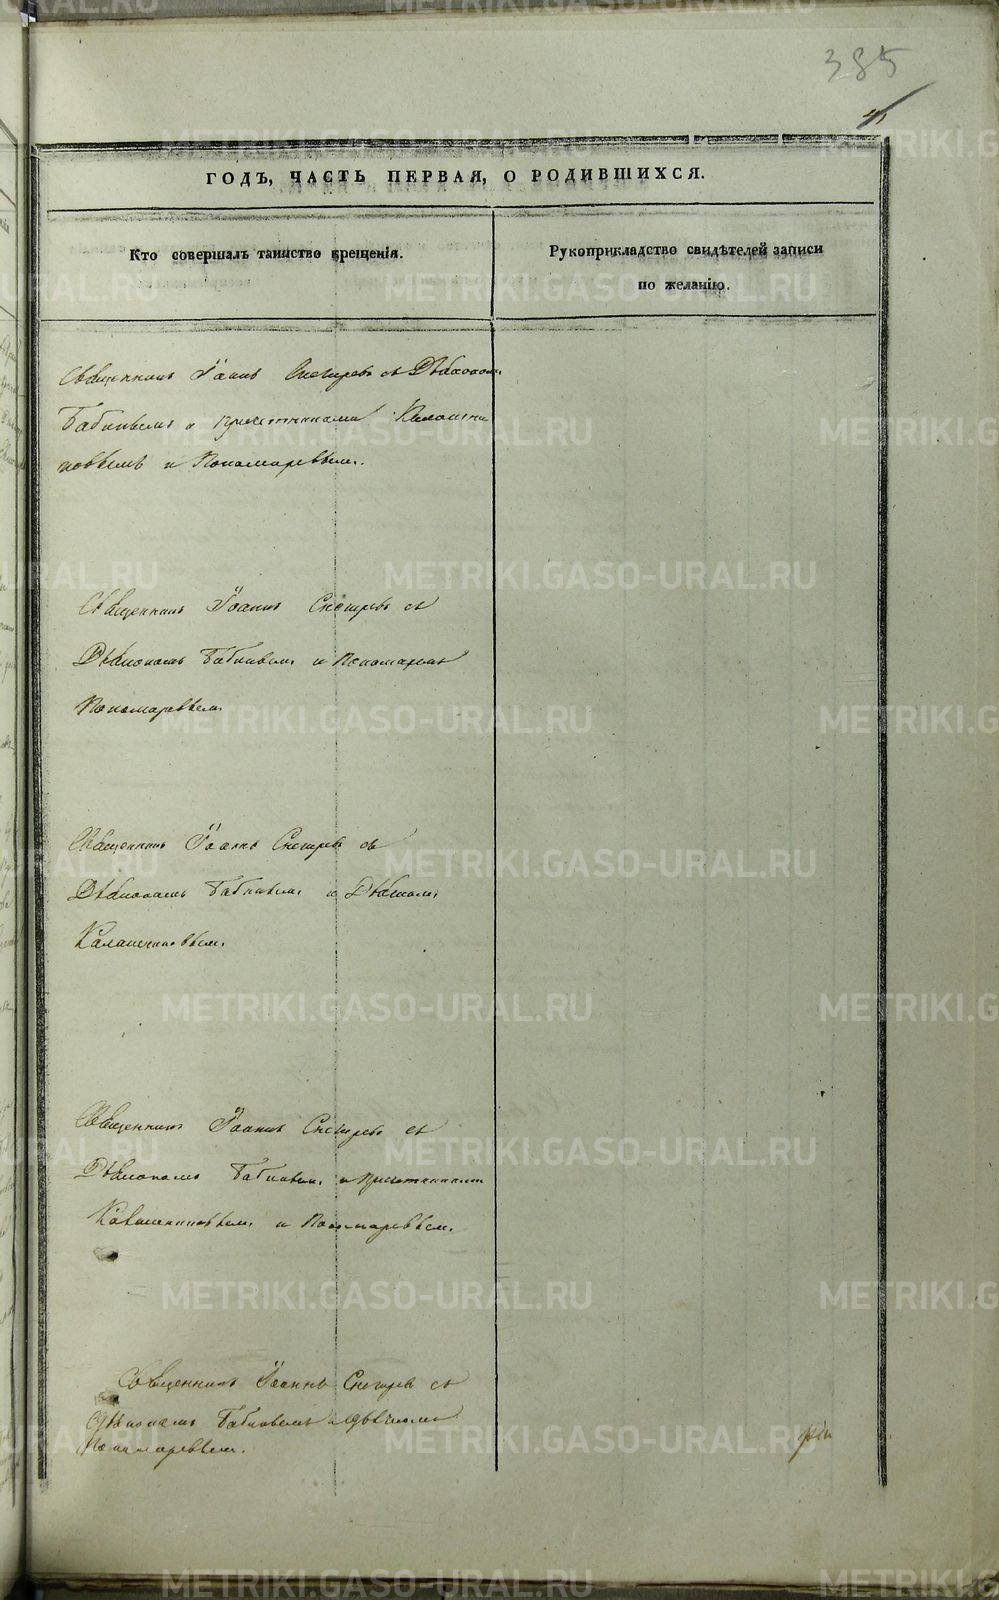 385
ГОДЪ, ЧАСТЬ ПЕРВАЯ, О РОДИВШИХСЯ.
Кто совершалъ таинство крещенія.
Рукоприкладство свидѣтелей записи
по желанію.
Священникъ Іоаннъ Снегиревъ съ Дьякономъ
Бабиновымъ и причетниками Калашни
ковымъ и Пономаревымъ.
Священникъ Іоаннъ Снегиревъ съ
Дьякономъ Бабиновымъ и Пономаремъ
Пономаревымъ
Священникъ Іоаннъ Снегиревъ съ
Дьякономъ Бабиновымъ и Дьячкомъ
Калашниковымъ.
Священникъ Іоаннъ Снегиревъ съ
Дьякономъ Бабиновымъ и причетниками
Калашниковымъ и Пономаревымъ.
Священникъ Іоаннъ Снегиревъ съ
дьякономъ Бабиновымъ и дьячкомъ
Пономаревымъ.
METRIKI.GASO-URAL.RU